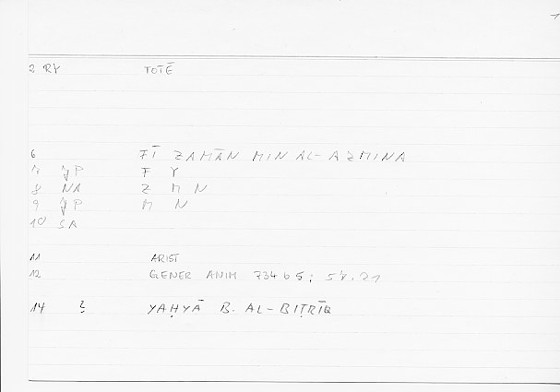 1
2 RY TOTĒ
6 FĪ ZAMĀN MIN AL-AZMINA
7 JP F Y
8 NA Z M N
9 JP M N
10 SA
11 ARIST
12 GENER ANIM 734 b 5; 58.21
14 YAḤYĀ B. AL-BIṬRĪQ